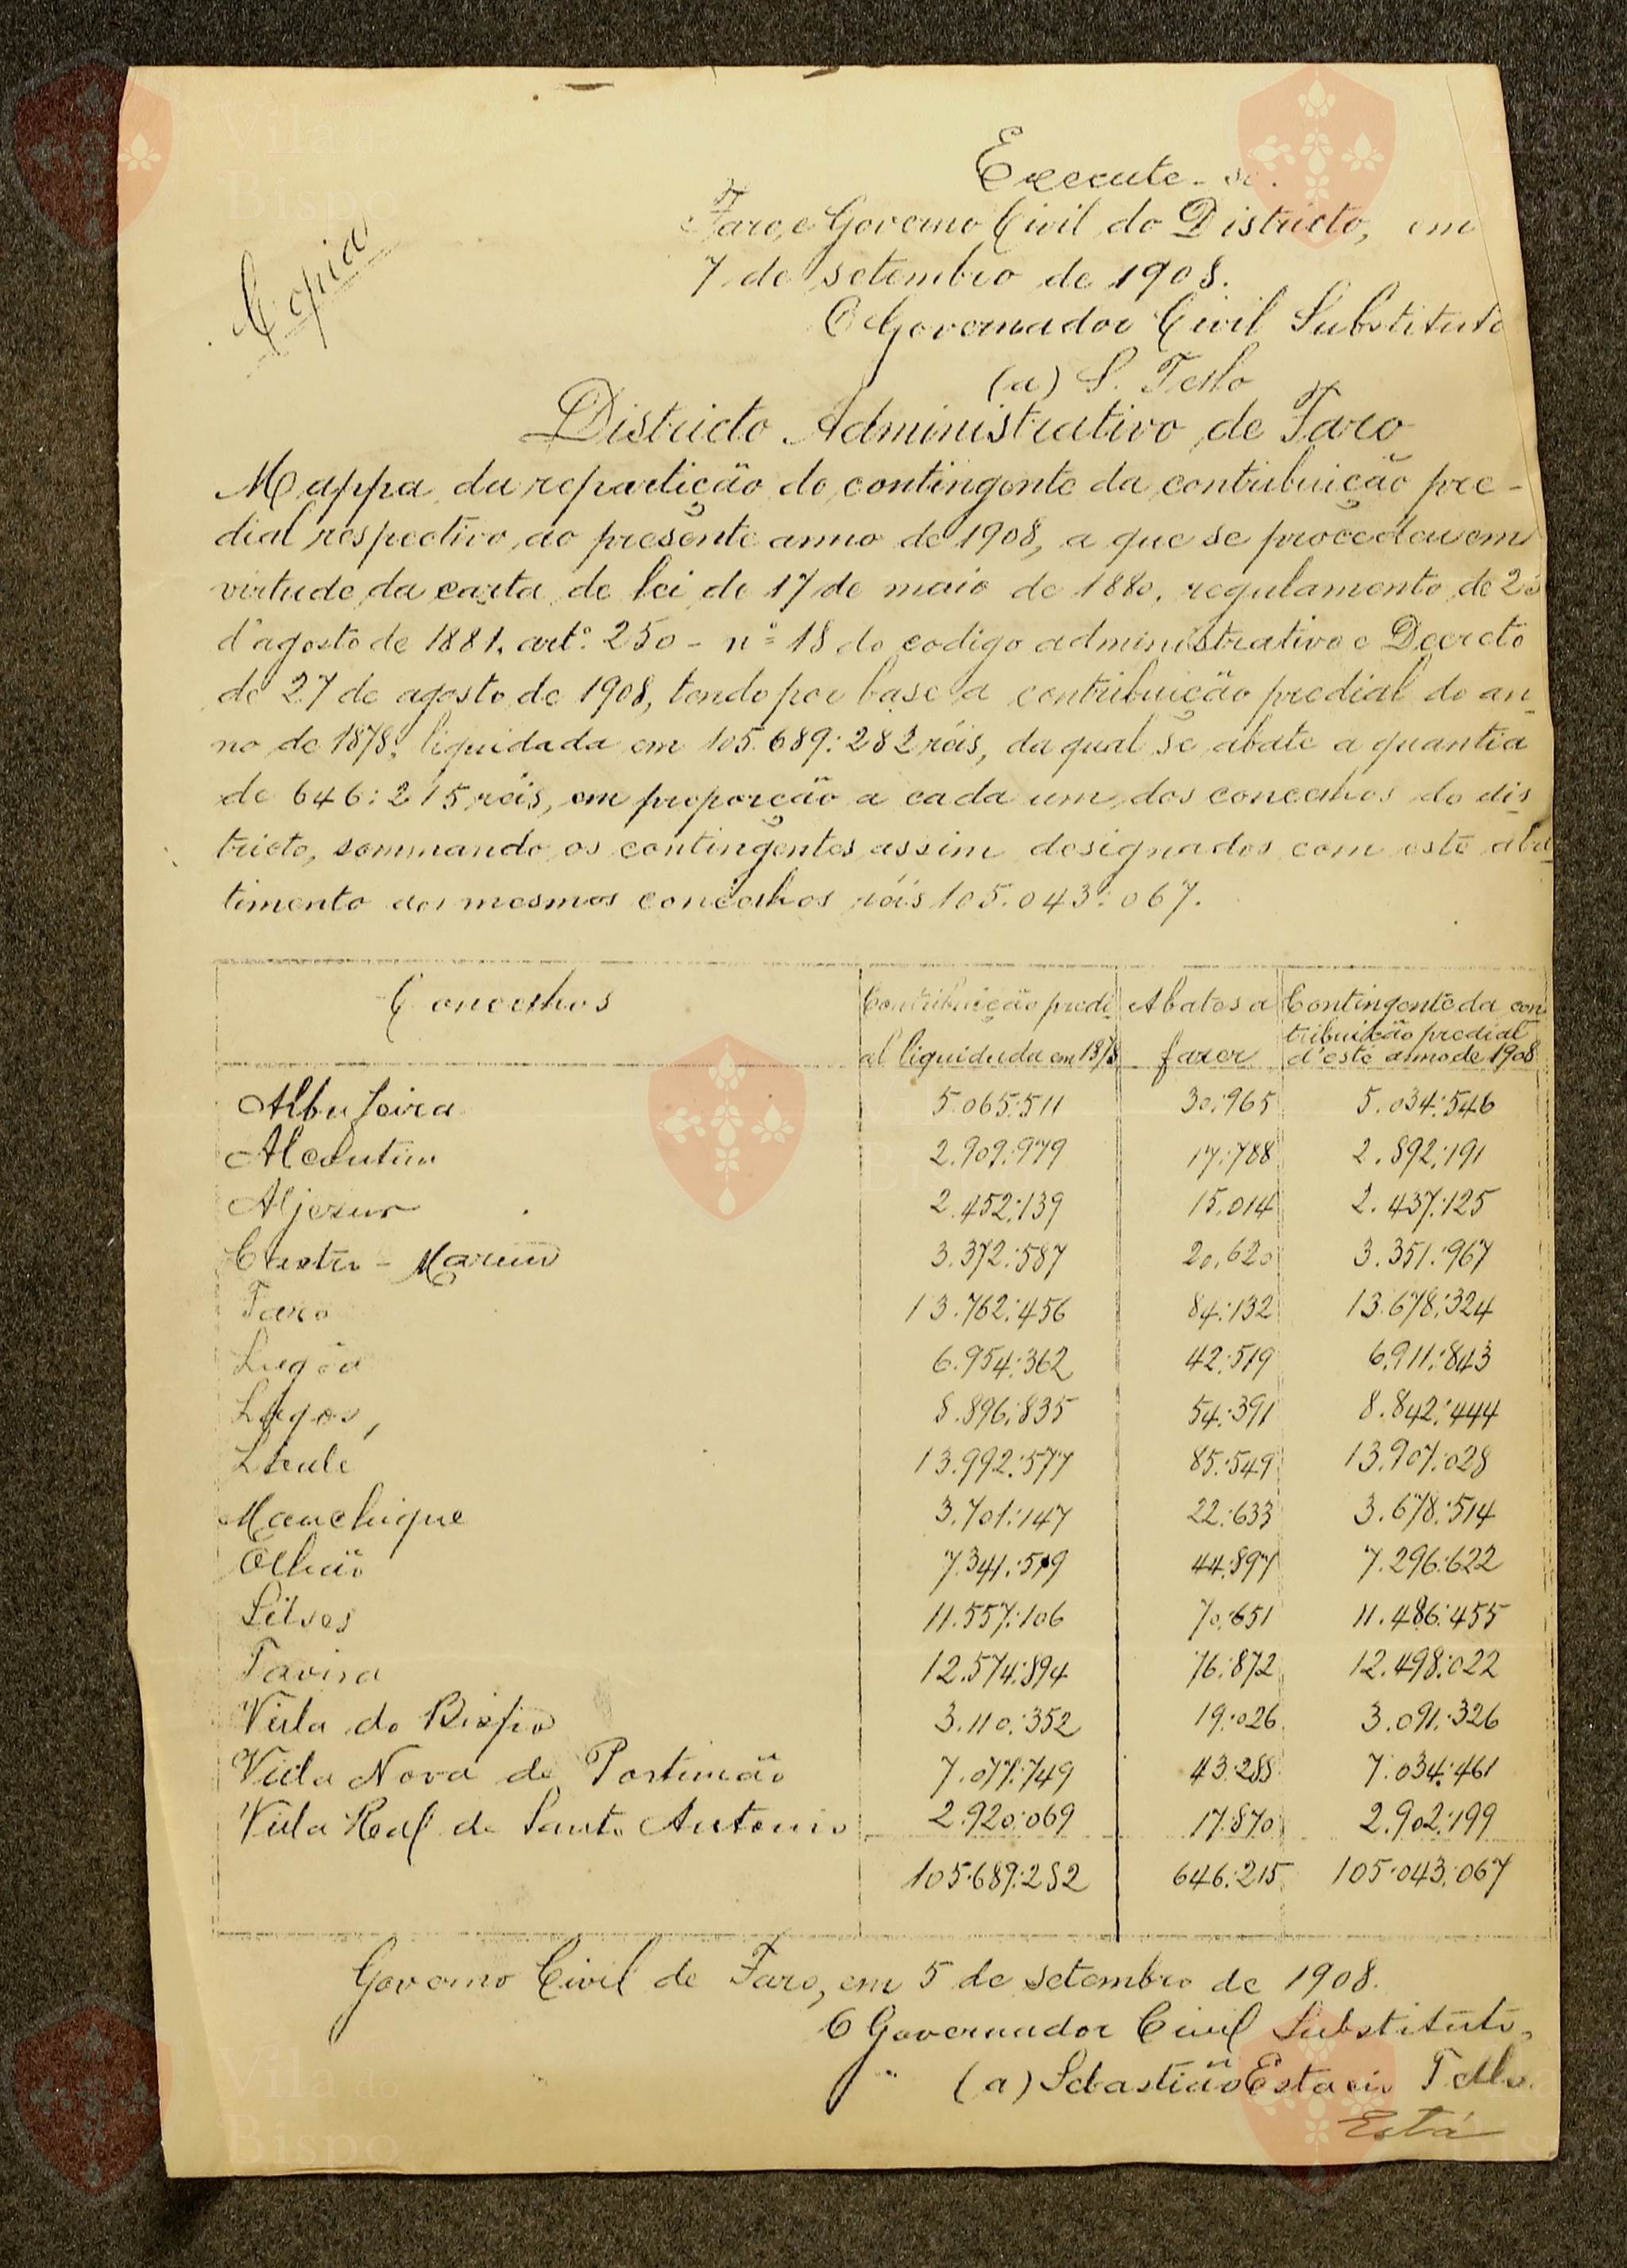 Execute-se.
Faro, e Governo Civil do Districto, em
7 de setembro de 1908.
O Governador Civil Substituto
(a) S. Tello
Copia
Districto Administrativo de Faro
Mappa da repartição do contingente da contribuição pre-
dial respectivo ao presente anno de 1908, a que se procedeu em
virtude da carta de lei de 17 de maio de 1880, regulamento de 25
d'agosto de 1881, artº. 250 - nº 18 do codigo administrativo e Decreto
de 27 de agosto de 1908, tendo por base a contribuição predial do an-
no de 1878, liquidada em 105.689:282 réis, da qual se abate a quantia
de 646:215 réis, em proporção a cada um dos concelhos do dis-
tricto, sommando os contingentes assim designados com este aba-
timento aos mesmos concelhos réis 105.043:067.
Concelhos Contribuição predi- Abates a Contingente da con-
al liquidada em 1878 fazer tribuição predial
d'este anno de 1908
Albufeira 5.065:511 30:965 5.034:546
Alcoutim 2.909:979 17:788 2.892:191
Aljezur 2.452:139 15:014 2.437:125
Castro-Marim 3.372:587 20:620 3.351:967
Faro 13.762:456 84:132 13.678:324
Lagôa 6.954:362 42:519 6.911:843
Lagos, 8.896:835 54:391 8.842:444
Loulé 13.992:577 85:549 13.907:028
Monchique 3.701:147 22:633 3.678:514
Olhão 7.341:519 44:897 7.296:622
Silves 11.557:106 70:651 11.486:455
Tavira 12.574:894 76:872 12.498:022
Villa do Bispo 3.110:352 19:026 3.091:326
Villa Nova de Portimão 7.077:749 43:288 7.034:461
Villa Real de Santo Antonio 2.920:069 17:870 2.902:199
105.689:282 646:215 105.043:067
Governo Civil de Faro, em 5 de setembro de 1908.
O Governador Civil Substituto,
(a) Sebastião Estacio Tello.
Está
Vila
Bispo